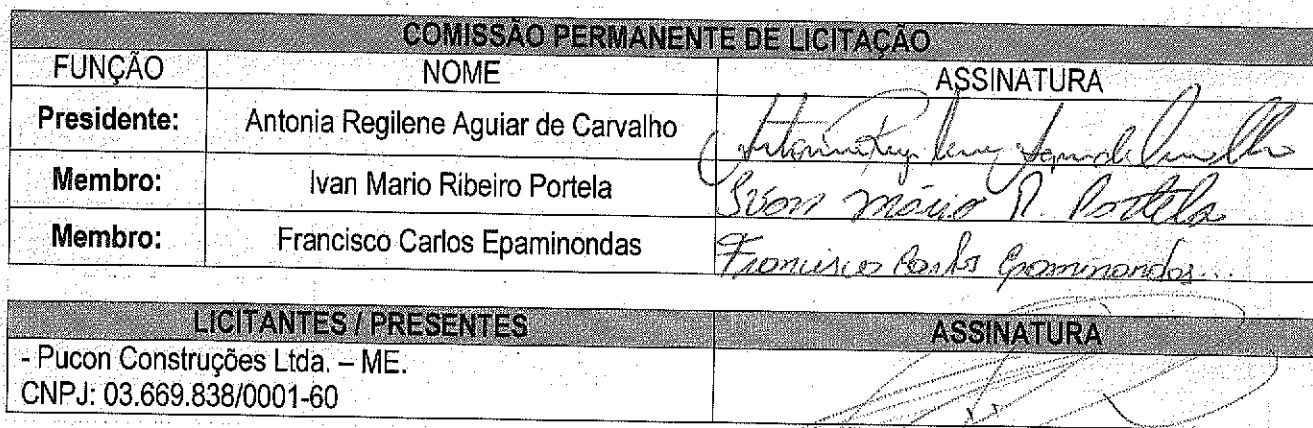 COMISSÃO PERMANENTE DE LICITAÇÃO
FUNÇÃO NOME ASSINATURA
Presidente: Antonia Regilene Aguiar de Carvalho
Membro: Ivan Mario Ribeiro Portela Ivan Mário R. Portela
Membro: Francisco Carlos Epaminondas Francisco Carlos Epaminondas
LICITANTES / PRESENTES ASSINATURA
- Pucon Construções Ltda. – ME.
CNPJ: 03.669.838/0001-60